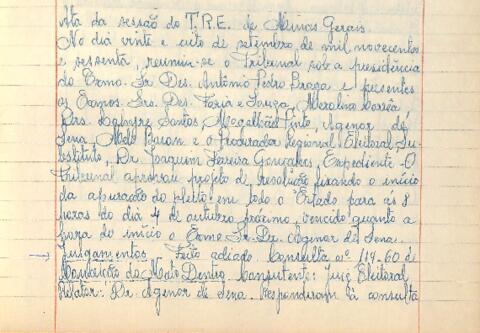 Ata da sessão do T.R.E. de Minas Gerais.
No dia vinte e oito de setembro de mil novecentos
e sessenta, reuniu-se o Tribunal sob a presidência
do Exmo. Sr. Des. Antônio Pedro Braga e presentes
os Exmos. Srs. Des. Faria e Souza, Merolino Corrêa
Drs. Lafayre Santos, Magalhães Pinto, Agenor de
Sena, e o Procurador Regional Eleitoral Su-
bstituto, Dr. Joaquim Ferreira Gonçalves, Expediente - O
Tribunal aprovou projeto de resolução fixando o início
da apuração do pleito em todo o Estado para as 8
horas do dia 4 de outubro próximo, vencido quanto a
hora de início o Exmo. Sr. Dr. Agenor de Sena.
Julgamentos Feito adiado. Consulta nº 114-60 de
Conceição do Mato Dentro. Consulente: Juiz Eleitoral
Relator: Dr. Agenor de Sena. Responderam à consulta